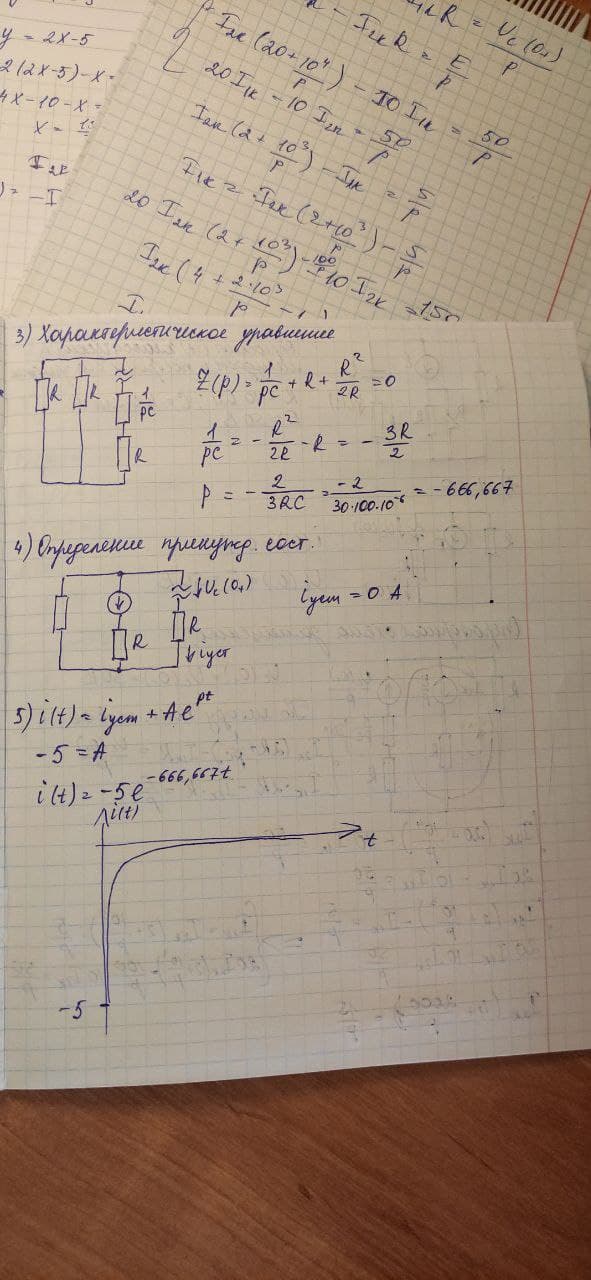 y = 2x-5
2(2x-5)-x=
4x-10-x=
x =
I₂ₖ
= -I
- I₂ₖR = E/p
R = Uc(0₊)/p
I₂ₖ(20+10⁴/p) - 10 I₁ₖ = 50/p
20I₁ₖ - 10 I₂ₖ = 50/p
I₂ₖ(2+10³/p) - I₁ₖ = 5/p
I₁ₖ = I₂ₖ(2+10³/p) - 5/p
20 I₂ₖ(2+10³/p) - 100/p - 10 I₂ₖ = 150
I₂ₖ(4+2·10³/p
3) Характеристическое уравнение
R
R
1/pC
R
Z(p) = 1/pC + R + R²/2R = 0
1/pC = -R²/2R - R = -3R/2
p = -2/3RC = -2/30·100·10⁻⁶ = -666,667
4) Определение принужд. сост.
↓Uc(0₊)
R
R
↓iуст
iуст = 0 A
5) i(t) = iуст + Ae^pt
-5 = A
i(t) = -5e^-666,667t
i(t)
t
-5